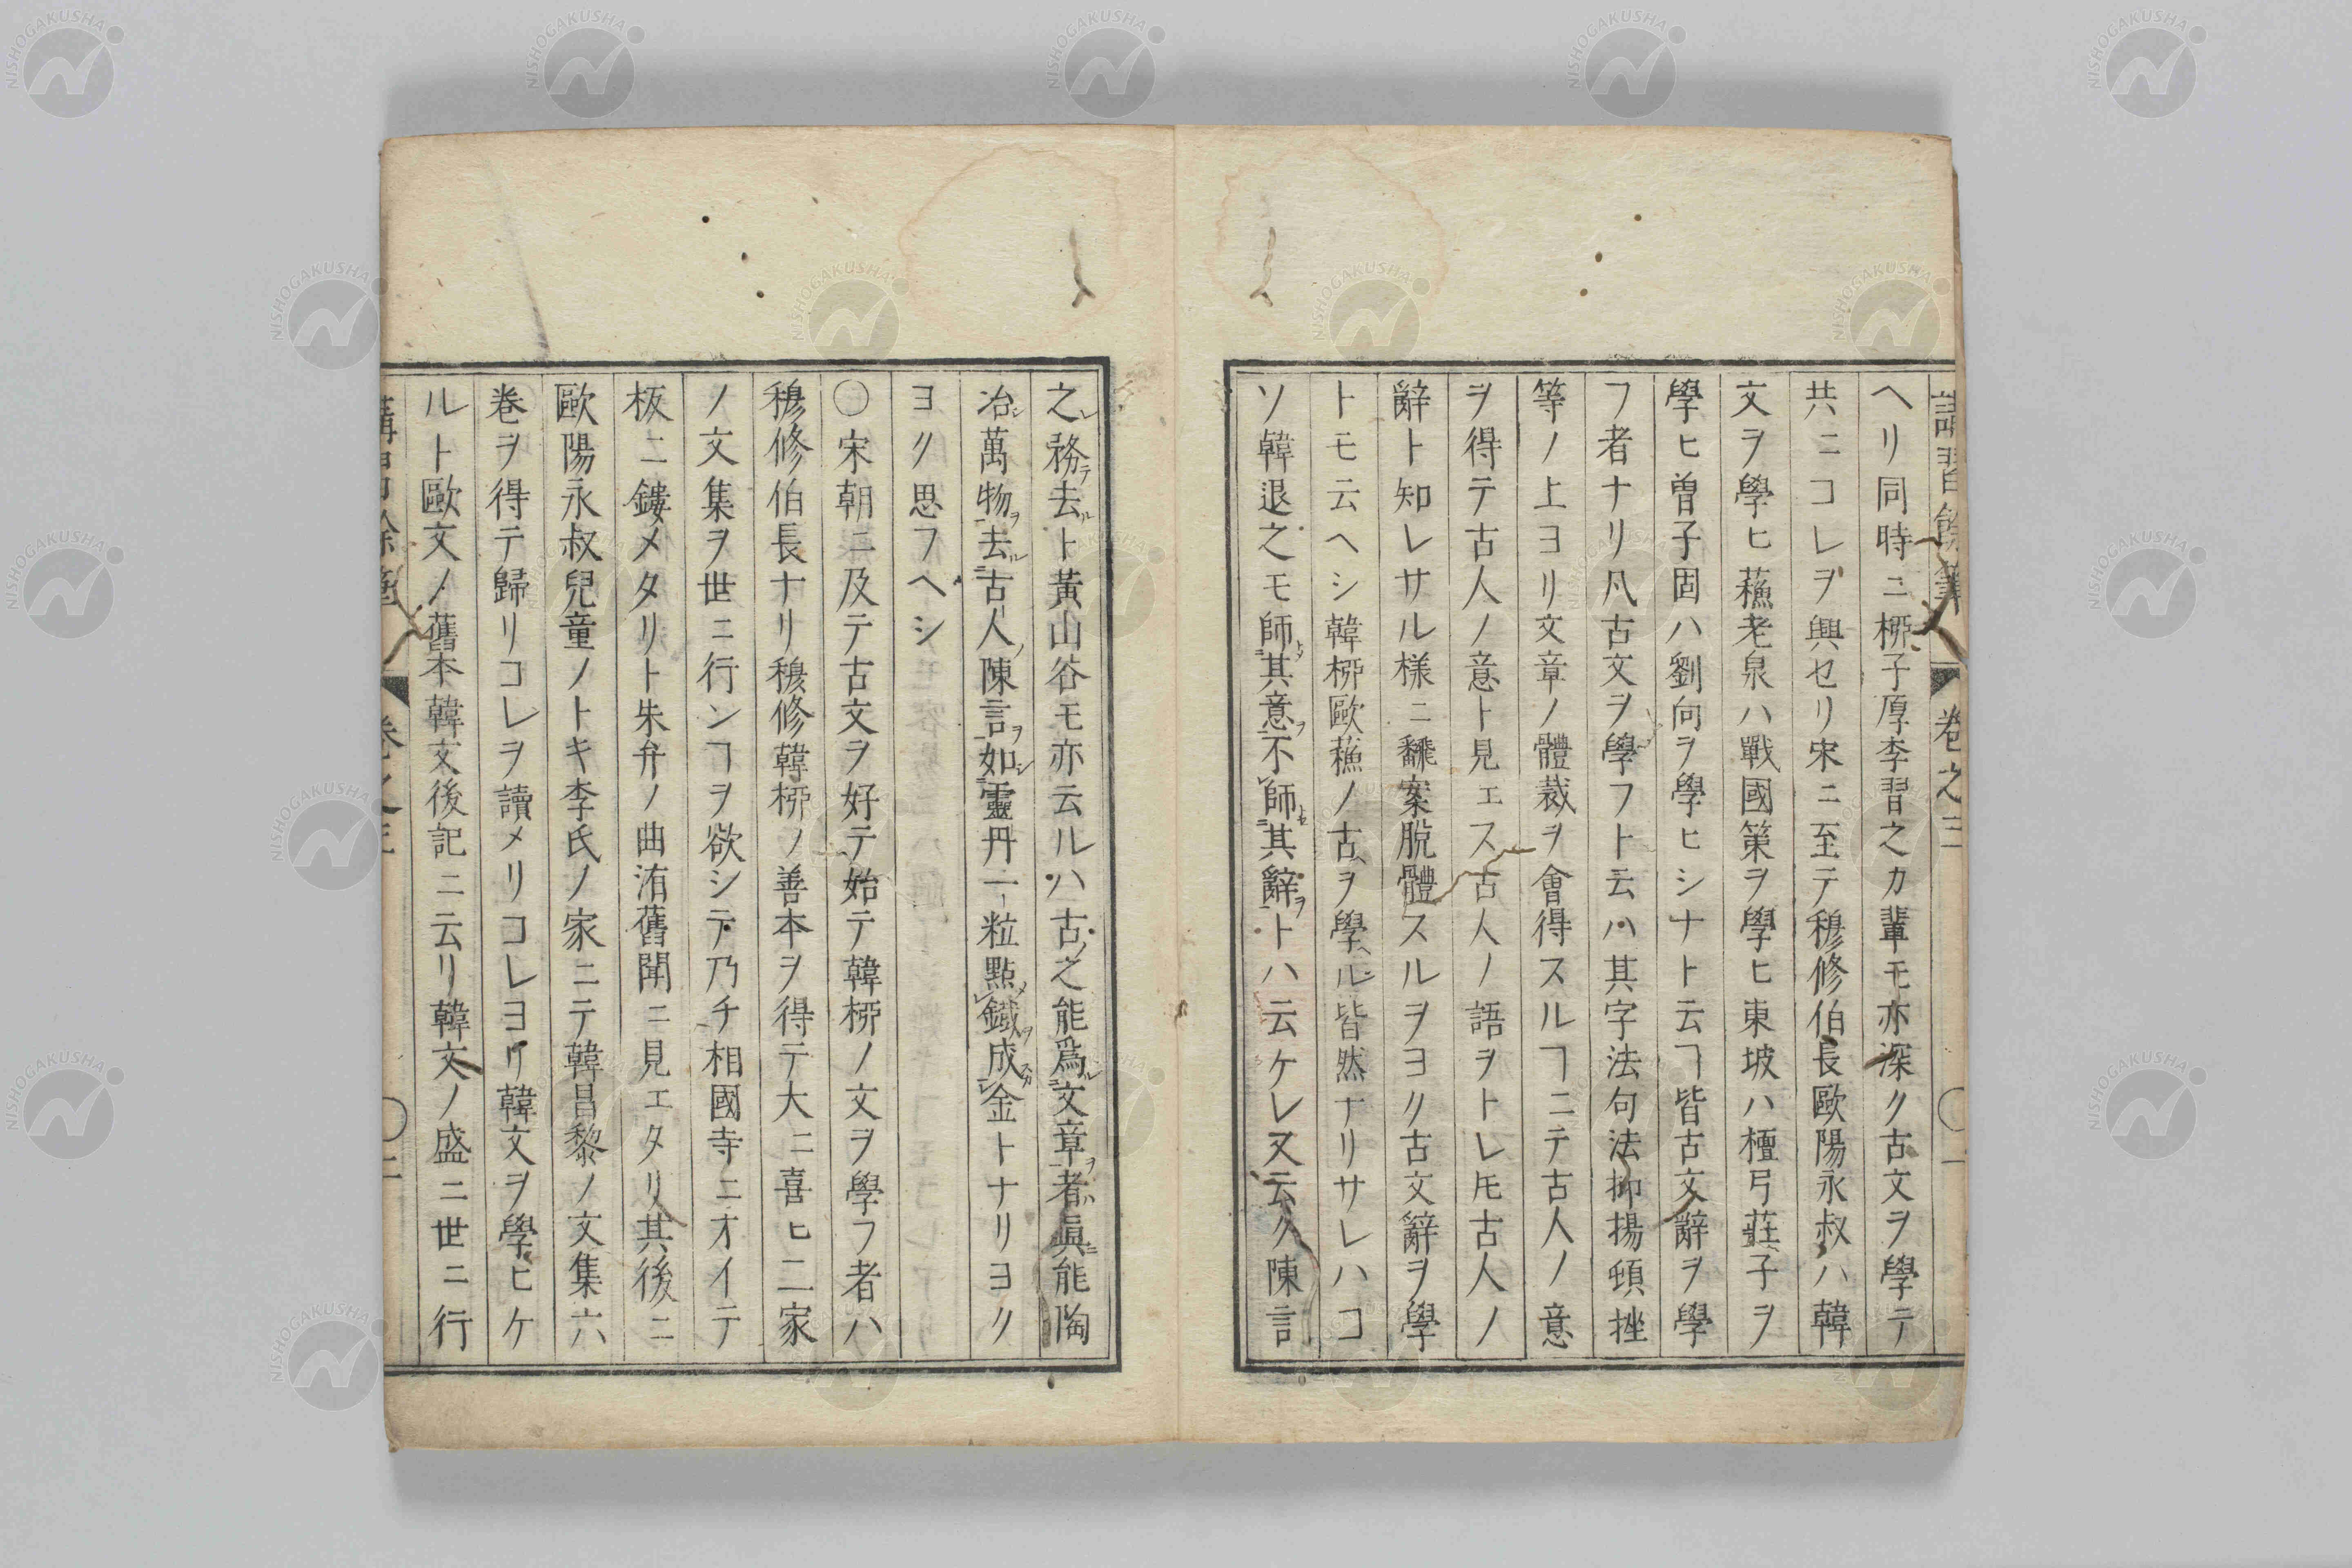 講習餘筆 卷之三 〇一
ヘリ同時ニ桺子厚李習之カ輩モ亦深ク古文ヲ學テ
共ニコレヲ興セリ宋ニ至テ穆修伯長歐陽永叔ハ韓
文ヲ學ヒ蘓老泉ハ戰國策ヲ學ヒ東坡ハ檀弓莊子ヲ
學ヒ曽子固ハ劉向ヲ學ヒシナト云ヿ皆古文辭ヲ學
フ者ナリ凡古文ヲ學フト云ハ其字法句法抑揚頓挫
等ノ上ヨリ文章ノ體裁ヲ會得スルヿニテ古人ノ意
ヲ得テ古人ノ意ト見エス古人ノ語ヲトレ𪜈古人ノ
辭ト知レサル樣ニ飜案脫體スルヲヨク古文辭ヲ學
トモ云ヘシ韓桺歐蘓ノ古ヲ學ヘル皆然ナリサレハコ
ソ韓退之モ師其意不師其辭トハ云ケレ又云ク陳言
之務去ト黃山谷モ亦云ルハ古之能爲文章者眞能陶
冶萬物去古人陳言如靈丹一粒點鐵成金トナリヨク
ヨク思フヘシ
〇宋朝ニ及テ古文ヲ好テ始テ韓桺ノ文ヲ學フ者ハ
穆修伯長ナリ穆修韓桺ノ善本ヲ得テ大ニ喜ヒ二家
ノ文集ヲ世ニ行ンヿヲ欲シテ乃チ相國寺ニオイテ
板ニ鏤メタリト朱弁ノ曲洧舊聞ニ見エタリ其後ニ
歐陽永叔兒童ノトキ李氏ノ家ニテ韓昌黎ノ文集六
巻ヲ得テ歸リコレヲ讀メリコレヨリ韓文ヲ學ヒケ
ルト歐文ノ舊本韓文後記ニ云リ韓文ノ盛ニ世ニ行
講習餘筆 卷之三 〇二